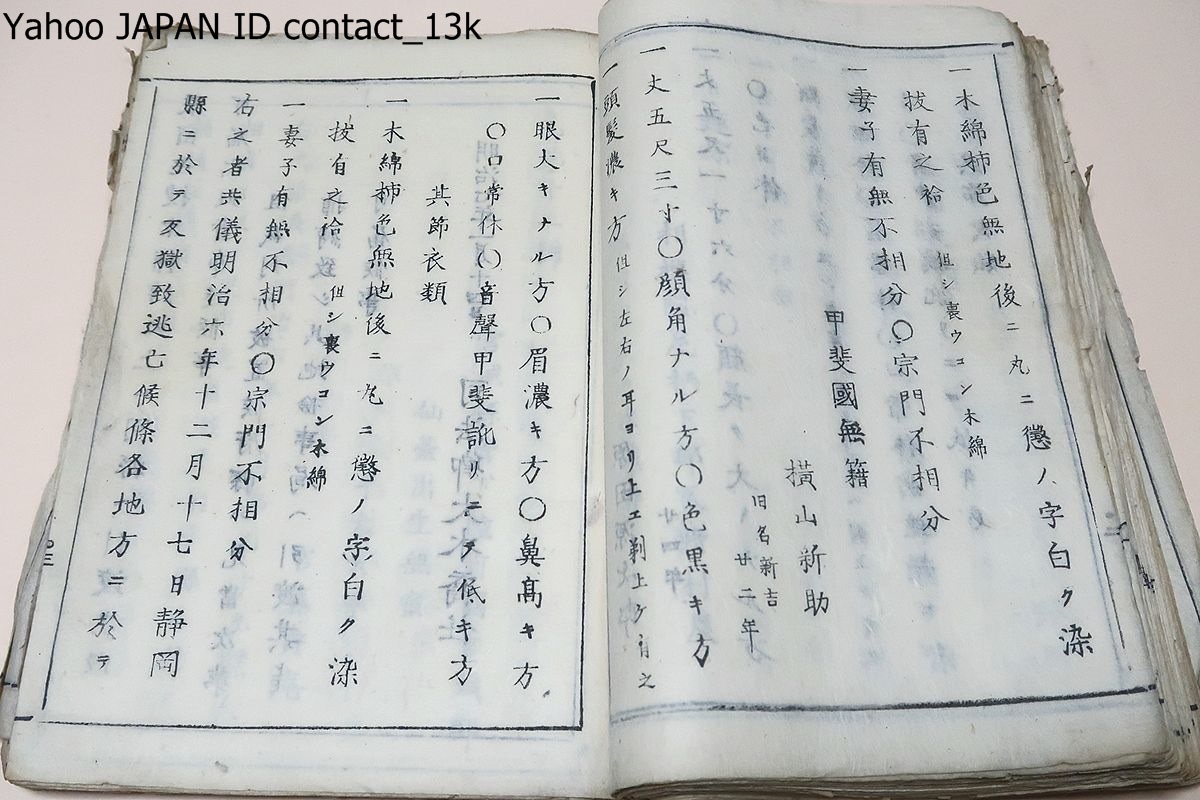 Yahoo JAPAN ID contact_13k
一 木綿柿色無地後ニ丸ニ懲ノ字白ク染
抜有之袷 但シ裏ウコン木綿
一 妻子有無不相分〇宗門不相分
甲斐國無籍
橫山新助
旧名新吉
廿二年
一 丈五尺三寸〇顔角ナル方〇色黒キ方
一 頭髪濃キ方 但シ左右ノ耳ヨリ上エ剃上ケ有之
一 眼大キナル方〇眉濃キ方〇鼻高キ方
〇口常体〇音聲甲斐訛リニテ低キ方
其節衣類
一 木綿柿色無地後ニ丸ニ懲ノ字白ク染
抜有之袷 但シ裏ウコン木綿
一 妻子有無不相分〇宗門不相分
右之者共儀明治六年十二月十七日静岡
縣ニ於テ反獄致逃亡候條各地方ニ於テ